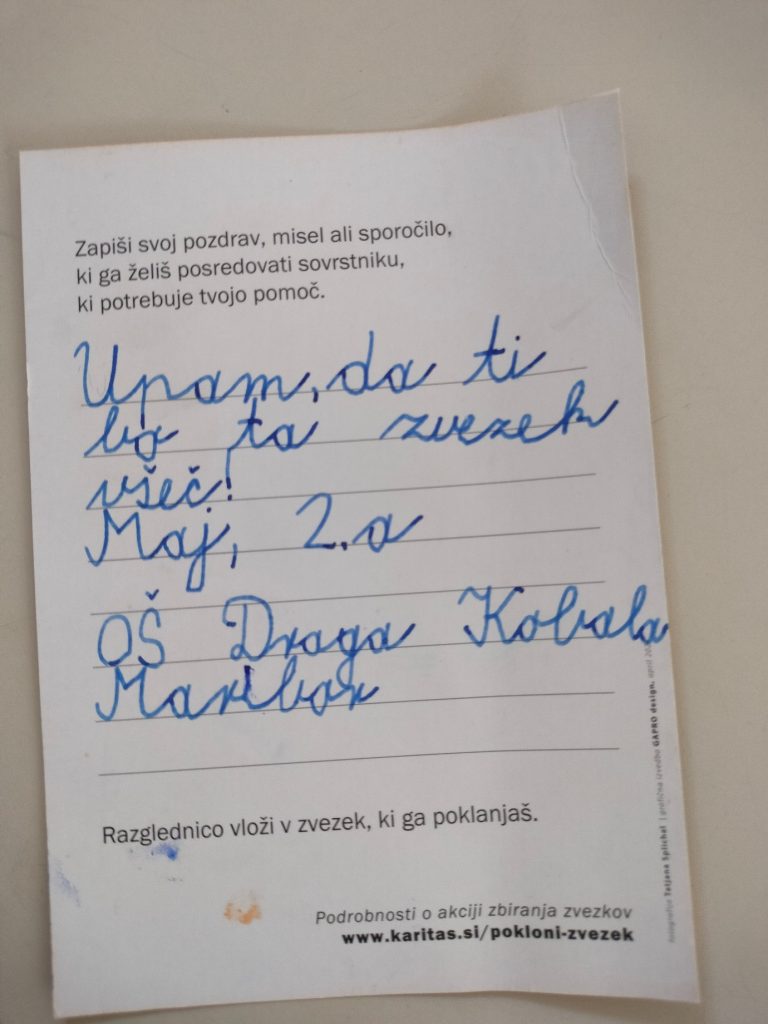 Zapiši svoj pozdrav, misel ali sporočilo,
ki ga želiš posredovati sovrstniku,
ki potrebuje tvojo pomoč.
Upam, da ti
bo ta zvezek
všeč!
Maj, 2.a
OŠ Draga Kobala
Maribor
Razglednico vloži v zvezek, ki ga poklanjaš.
Podrobnosti o akciji zbiranja zvezkov
www.karitas.si/pokloni-zvezek
fotografija Tatjana Splichal | grafična izvedba GAPRO design, april